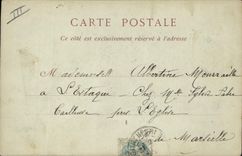 III
CARTE POSTALE
Ce côté est exclusivement réservé à l'adresse
Mademoiselle Albertine
à L'Estaque — Chez Mme Sylvie
près L'Eglise
de Marseille